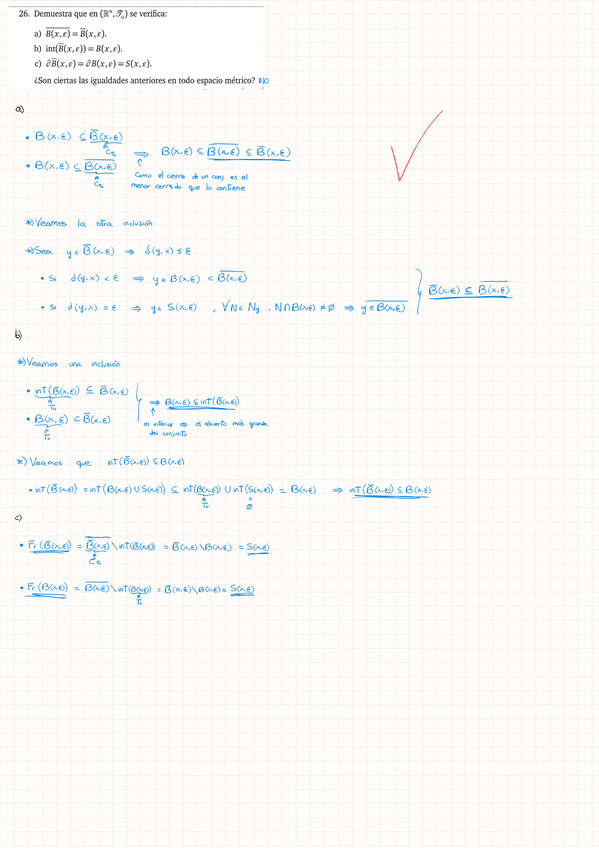 26. Demuestra que en (ℝⁿ, 𝒯ᵤ) se verifica:
a) $\overline{B(x,ε)}$ = $\overline{B}$(x,ε).
b) int($\overline{B}$(x,ε)) = B(x,ε).
c) ∂$\overline{B}$(x,ε) = ∂B(x,ε) = S(x,ε).
¿Son ciertas las igualdades anteriores en todo espacio métrico? NO
a)
• B(x,ε) ⊆ $\overline{B}$(x,ε)
∩
C_{Tu} ⇒ B(x,ε) ⊆ $\overline{B(x,ε)}$ ⊆ $\overline{B}$(x,ε)
• B(x,ε) ⊆ $\overline{B(x,ε)}$
∩
C_{Tu}
↑
Como el cierre de un conj es el
menor cerrado que lo contiene
*) Veamos la otra inclusión
*) Sea y ∈ $\overline{B}$(x,ε) ⇒ d(y,x) ≤ ε
• Si d(y,x) < ε ⇒ y ∈ B(x,ε) ⊂ $\overline{B(x,ε)}$
• Si d(y,x) = ε ⇒ y ∈ S(x,ε) , ∀N ∈ N_y . N∩B(x,ε) ≠ ∅ ⇒ y ∈ $\overline{B(x,ε)}$ } $\overline{B}$(x,ε) ⊆ $\overline{B(x,ε)}$
b)
*) Veamos una inclusión:
• int($\overline{B}$(x,ε)) ⊆ $\overline{B}$(x,ε)
∩
Tu
• B(x,ε) ⊂ $\overline{B}$(x,ε)
∩
Tu
⇒ B(x,ε) ⊆ int($\overline{B}$(x,ε))
↑
el interior es el abierto más grande
del conjunto
*) Veamos que int($\overline{B}$(x,ε)) ⊆ B(x,ε)
• int($\overline{B}$(x,ε)) = int(B(x,ε) ∪ S(x,ε)) ⊆ int(B(x,ε)) ∪ int(S(x,ε)) = B(x,ε) ⇒ int($\overline{B}$(x,ε)) ⊆ B(x,ε)
∩ Tu = ∅
c)
• Fr($\overline{B}$(x,ε)) = $\overline{\overline{B}(x,ε)}$ \ int($\overline{B}$(x,ε)) = $\overline{B}$(x,ε) \ B(x,ε) = S(x,ε)
∩
C_{Tu}
• Fr(B(x,ε)) = $\overline{B(x,ε)}$ \ int(B(x,ε)) = $\overline{B}$(x,ε) \ B(x,ε) = S(x,ε)
∩
Tu